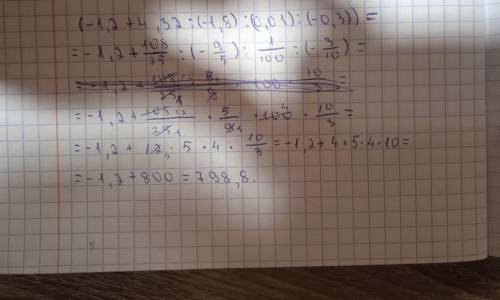 (-1,2+4,32:(-1,8):(0,01):(-0,3))=
=-1,2+108/25:(-9/5):1/100:(-3/10)=
=-1,2+108/25·5/9·100·10/3=
=-1,2+12·5·4·10/3=-1,2+4·5·4·10=
=-1,2+800=798,8.